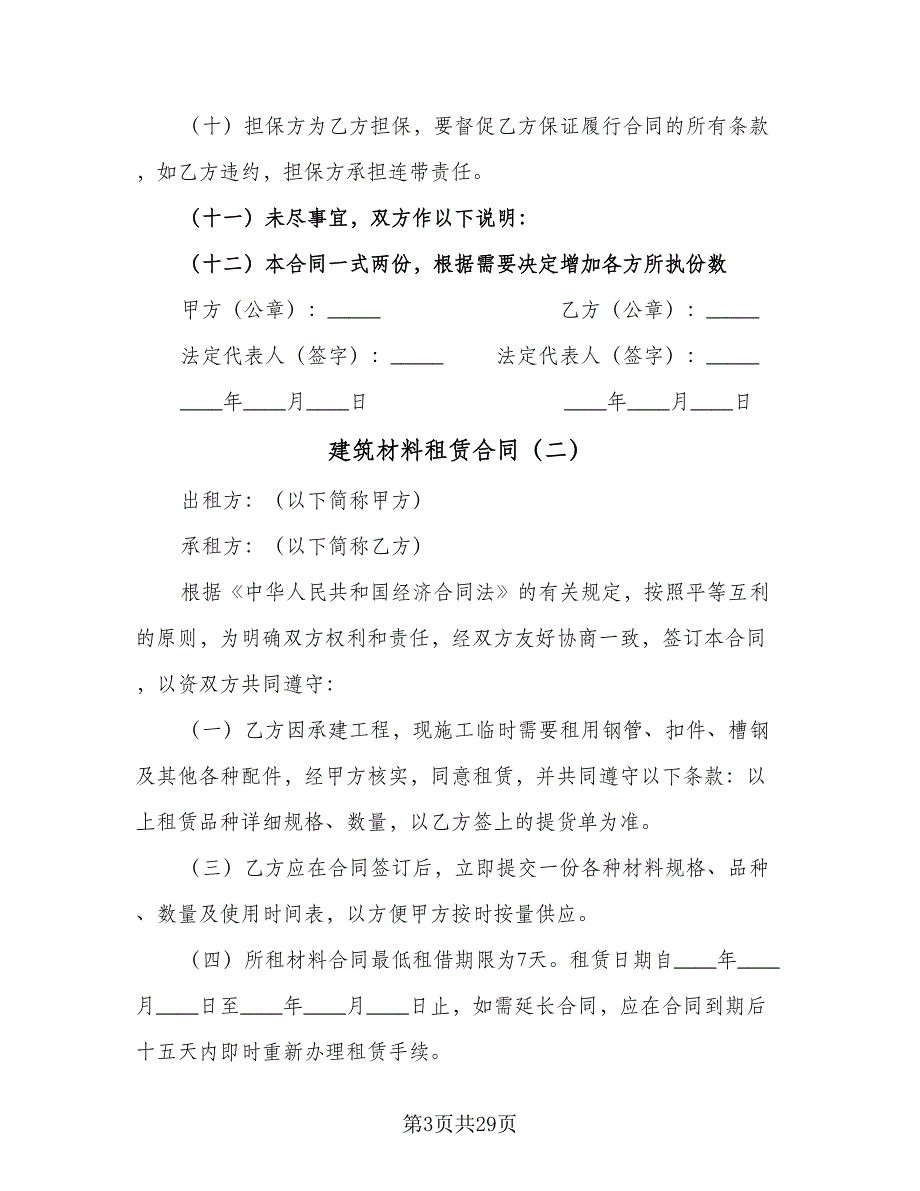 （十）担保方为乙方担保，要督促乙方保证履行合同的所有条款
，如乙方违约，担保方承担连带责任。
（十一）未尽事宜，双方作以下说明：
（十二）本合同一式两份，根据需要决定增加各方所执份数
甲方（公章）：_____ 乙方（公章）：_____
法定代表人（签字）：_____ 法定代表人（签字）：_____
____年____月____日 ____年____月____日
建筑材料租赁合同（二）
出租方：（以下简称甲方）
承租方：（以下简称乙方）
根据《中华人民共和国经济合同法》的有关规定，按照平等互利
的原则，为明确双方权利和责任，经双方友好协商一致，签订本合同
，以资双方共同遵守：
（一）乙方因承建工程，现施工临时需要租用钢管、扣件、槽钢
及其他各种配件，经甲方核实，同意租赁，并共同遵守以下条款：以
上租赁品种详细规格、数量，以乙方签上的提货单为准。
（三）乙方应在合同签订后，立即提交一份各种材料规格、品种
、数量及使用时间表，以方便甲方按时按量供应。
（四）所租材料合同最低租借期限为7天。租赁日期自____年____
月____日至____年____月____日止，如需延长合同，应在合同到期后
十五天内即时重新办理租赁手续。
第3页共29页